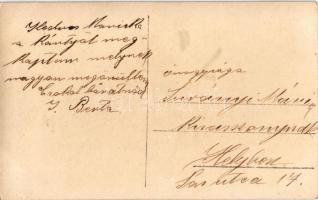 Kedves Mariska
a kártyát meg-
kaptam melynek
nagyon megörültem
Csókol barátnéd
J. Berta
őnagysága
Surányi Mari
kisasszonynak
Helyben
Sas utca 17.